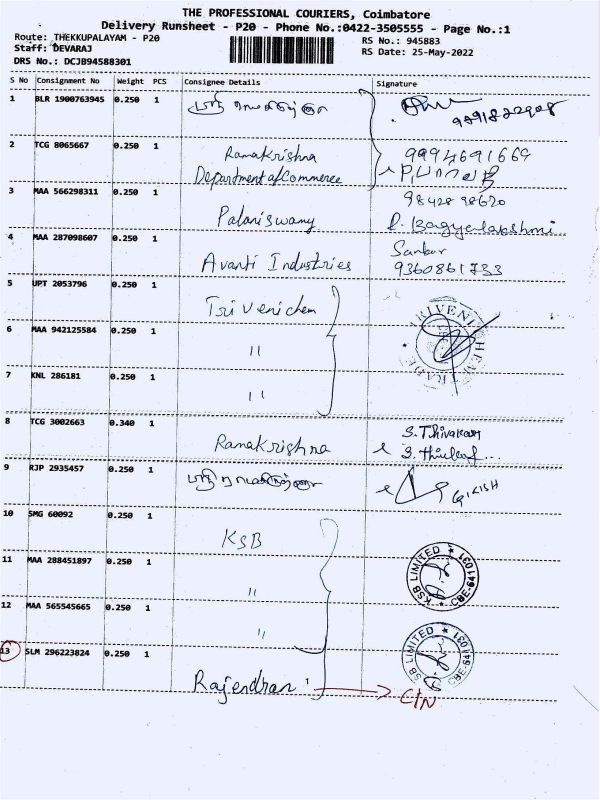 THE PROFESSIONAL COURIERS, Coimbatore
Delivery Runsheet - P20 - Phone No.:0422-3505555 - Page No.:1
Route: THEKKUPALAYAM - P20
RS No.: 945883
Staff: DEVARAJ
RS Date: 25-May-2022
DRS No.: DCJB94588301
S No Consignment No Weight PCS Consignee Details Signature
1 BLR 1900763945 0.250 1
2 TCG 8065667 0.250 1 Ramakrishna 9994691669
Department of Commerce
3 MAA 566298311 0.250 1 Palaniswamy
4 MAA 287098607 0.250 1 Avanti Industries Sankar
9360861733
5 UPT 2053796 0.250 1 Trivenichem
6 MAA 942125584 0.250 1 "
7 KNL 286181 0.250 1 "
8 TCG 3002663 0.340 1 Ramakrishna S. Thivakar
9 RJP 2935457 0.250 1 GIRISH
10 SMG 60092 0.250 1 KSB
11 MAA 288451897 0.250 1 " KSB LIMITED
12 MAA 565545665 0.250 1 " KSB LIMITED
13 SLM 296223824 0.250 1 Rajendran C/N